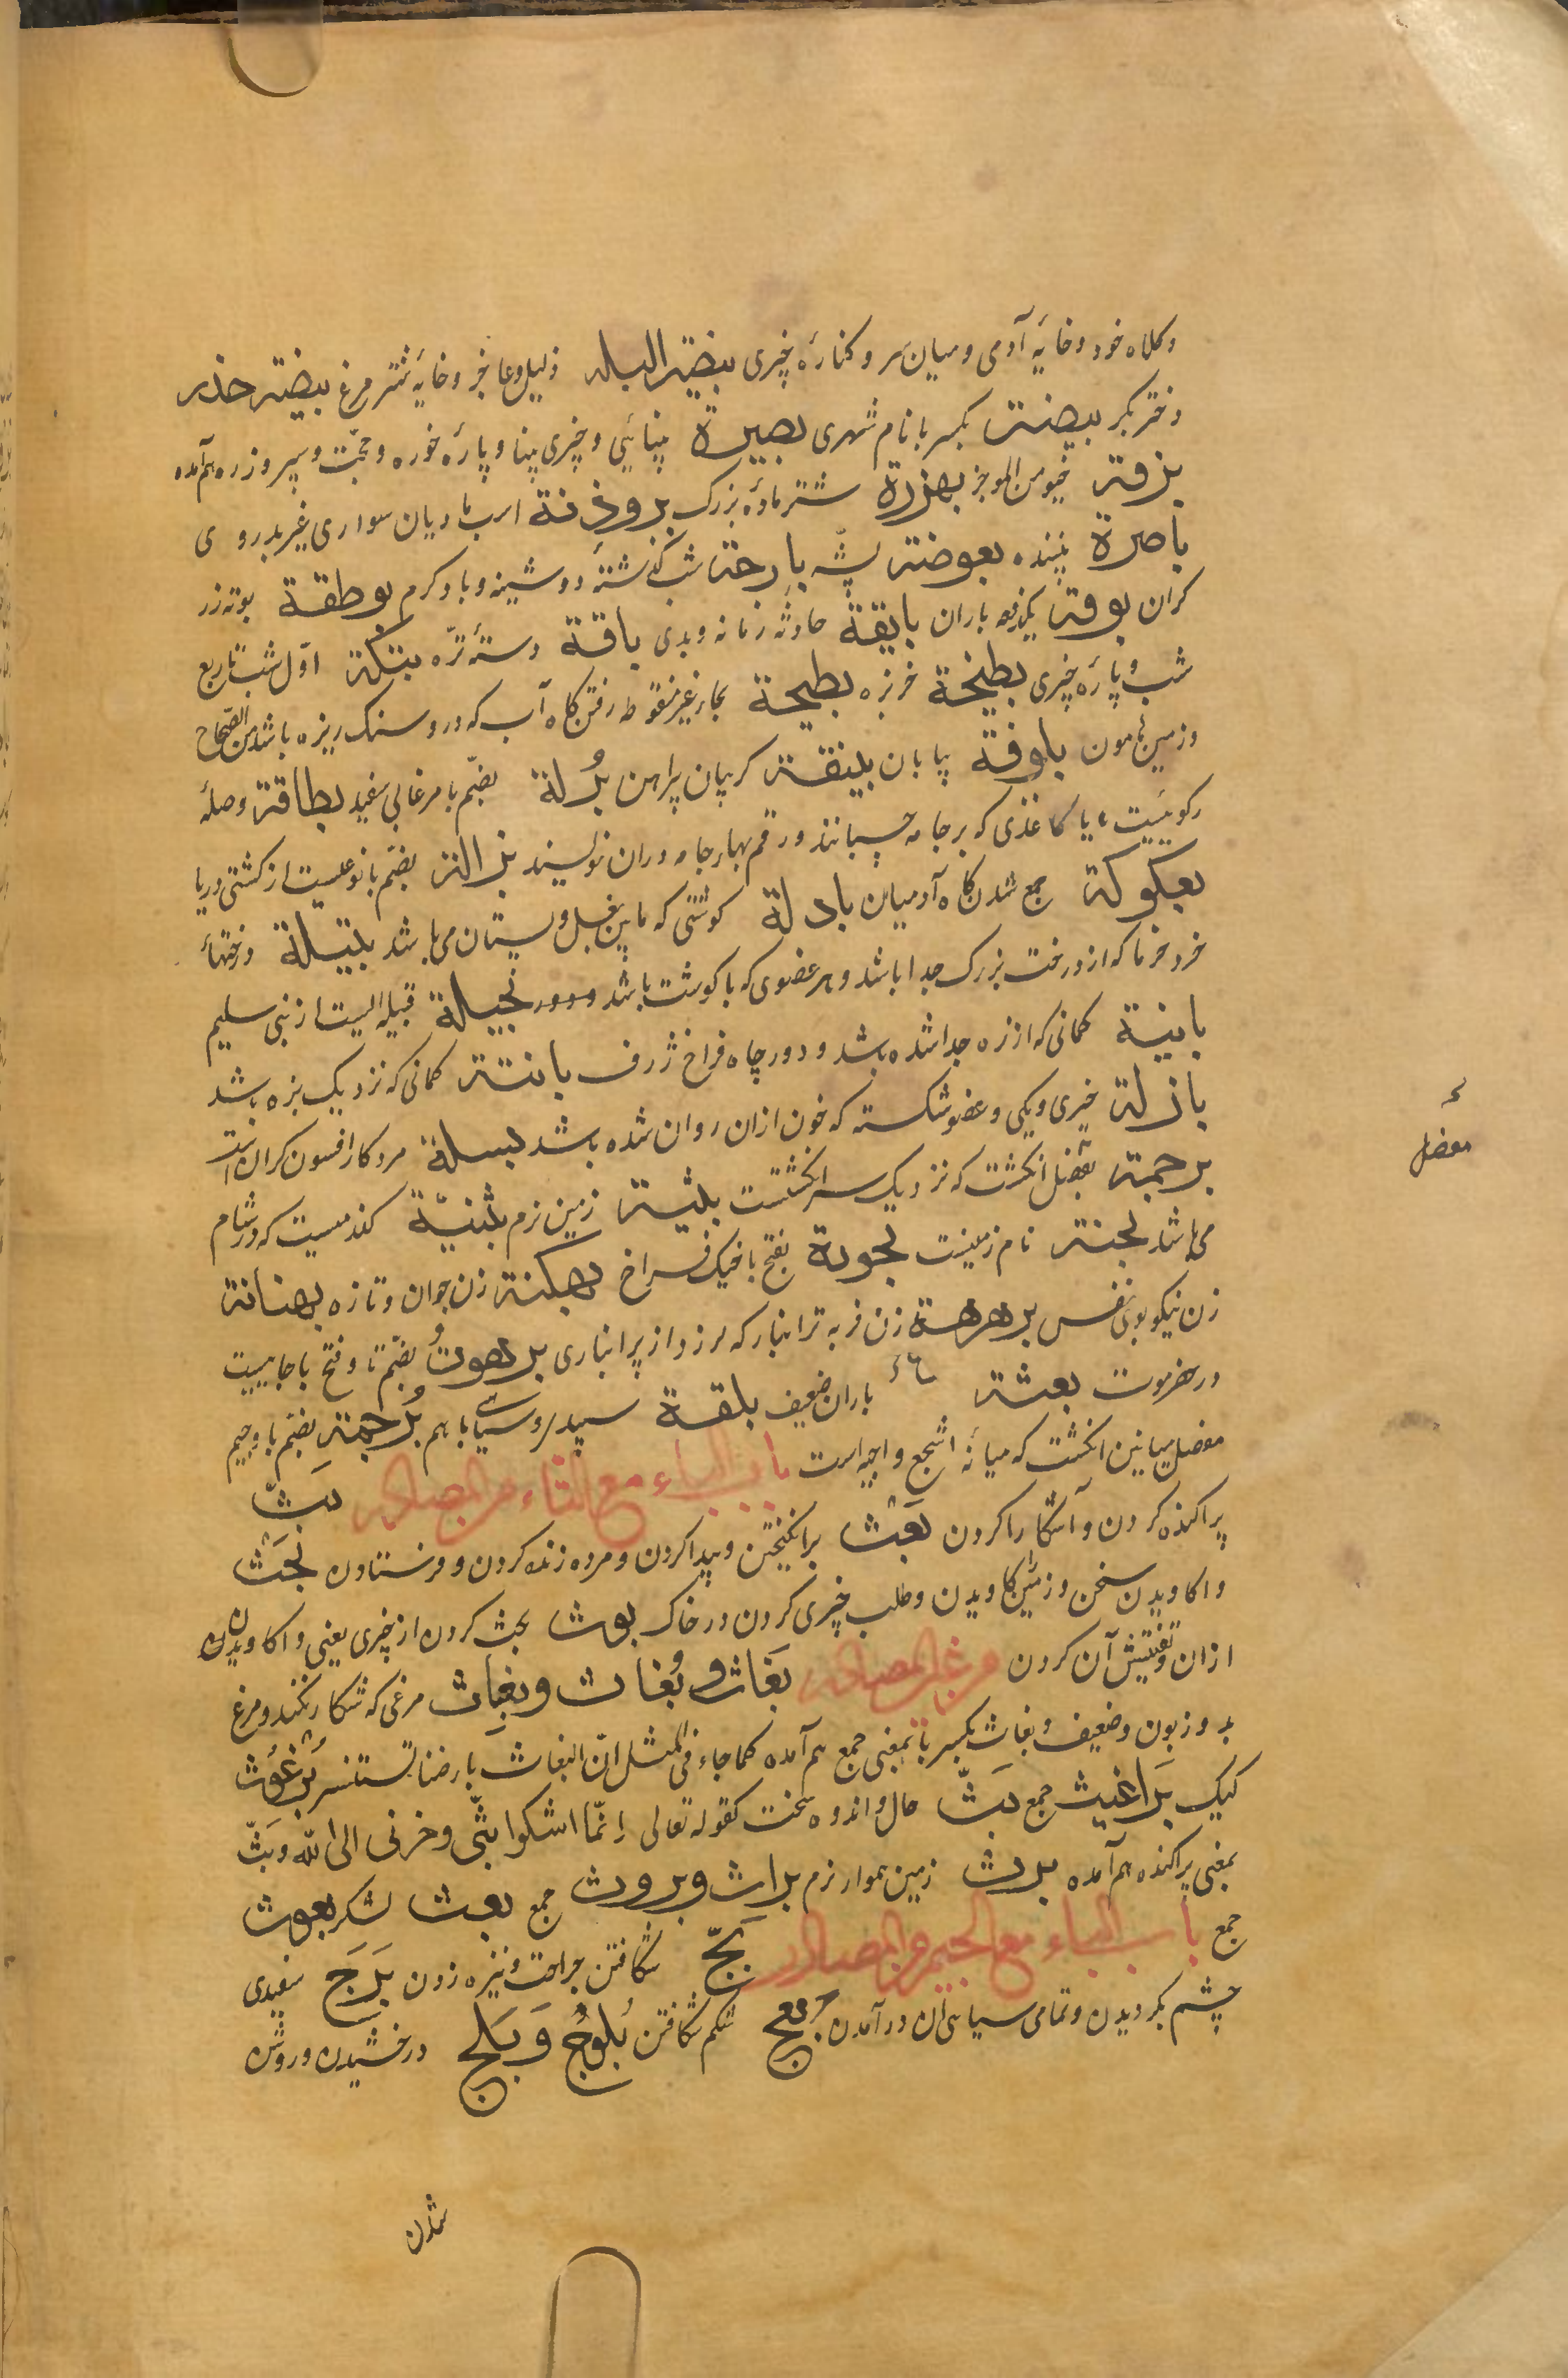 وکلاه خود و خایهٔ آدمی و میان سر و کنارهٔ چیزی بیضة البلد ذلیل و عاجز و خایهٔ شتر مرغ بیضة خدر
دختر بکر بیضة بکسر با نام شهری بصیرة بینائی و چیزی بینا و پارهٔ خون و حجت و سپر و زره هم آمده
بزقة خیو من الموجز بهزرة شتر مادهٔ بزرک برذونة اسب مادیان سواری غیر بدروی
باصرة بیننده بعوضة پشّه بارحة شب کذشتهٔ دوشینه و باد کرم بوطقة بوته زر
کران بوقة یکدفعه باران بایقة حادثه زمانه و بدی باقة دستهٔ ترّه بتکة اوّل شب تا ربع
شب و پارهٔ چیزی بطیخة خربزه بطیحة بحاء غیر منقوطه رفتن کاه آب که درو سنک ریزه باشد من الصحاح
و زمین هامون باوقة بیابان بنیقة کریبان پیراهن بُرلة بضم با مرغابی سفید بطاقة وصلهٔ
رکوییست یا کاغذی که بر جامه چسبانند و رقم بهار جامه دران نویسند بزالة بضم با نوعیست از کشتی دریا
بعکوکة جمع شدن کاه آدمیان بادلة کوشتی که مابین بغل و پستان می باشد بتیلة درختهاء
خرد خرما که از درخت بزرک جدا باشد و هر عضوی که با کوشت باشد بجیلة قبیله ایست از بنی سلیم
باینة کمانی که از زه جدا شده باشد و دور چاه فراخ ژرف بانتة کمانی که نزدیک بزه باشد
بازلة چیزی و یکی و عضو شکسته که خون ازان روان شده باشد بسلة مرد کار افسون کران است
برجمة مفصل انکشت که نزدیک سر انکشتست بلثیة زمین نرم بثنیّة کندمیست که در شام
می باشد بجنة نام زمینیست بجونة بفتح با خیک فراخ بهکنة زن جوان و تازه بهنانة
زن نیکو بوی نفس برهرهة زن فربه تر انبار که لرزد از پر انباری برهوتُ بضم تا و فتح با جاییست
در حضرموت بعشة باران ضعیف بلقة سپید و سیاهی با هم بُرجمة بضم با و جیم
مفصل میانین انکشت که میانهٔ اشجع و اجبه است باب الباء مع الثاء من المصادر بَثّ
پراکنده کردن و آشکارا کردن بَعْث برانکیختن و پیدا کردن و مرده زنده کردن و فرستادن بَحْث
واکاویدن سخن و زمین را کاویدن و طلب چیزی کردن در خاک بوث بحث کردن از چیزی یعنی واکاویدن
ازان و تفتیش آن کردن من غیر المصادر بَغاث و بُغاث و بِغاث مرغی که شکار نکند و مرغ
بد و زبون و ضعیف و بغاث بکسر با بمعنی جمع هم آمده کما جاء فی المثل انّ البغاث بارضنا تستنسر بُرغُوث
کیک بَراغیث جمع بَثّ حال و اندوه سخت کقوله تعالی إنّما اشکوا بثّی و حزنی الی الله و بَثّ
بمعنی پراکنده هم آمده برث زمین هموار نرم براث و بروث جمع بعث لشکر بعوث
جمع باب الباء مع الجیم من المصادر بَجّ شکافتن جراحت و نیزه زدن بَرَج سفیدی
چشم بکردیدن و تمامی سیاهی آن درآمدن بَعج شکم شکافتن بُلوُج و بَلَج درخشیدن و روشن
شدن
مفصل